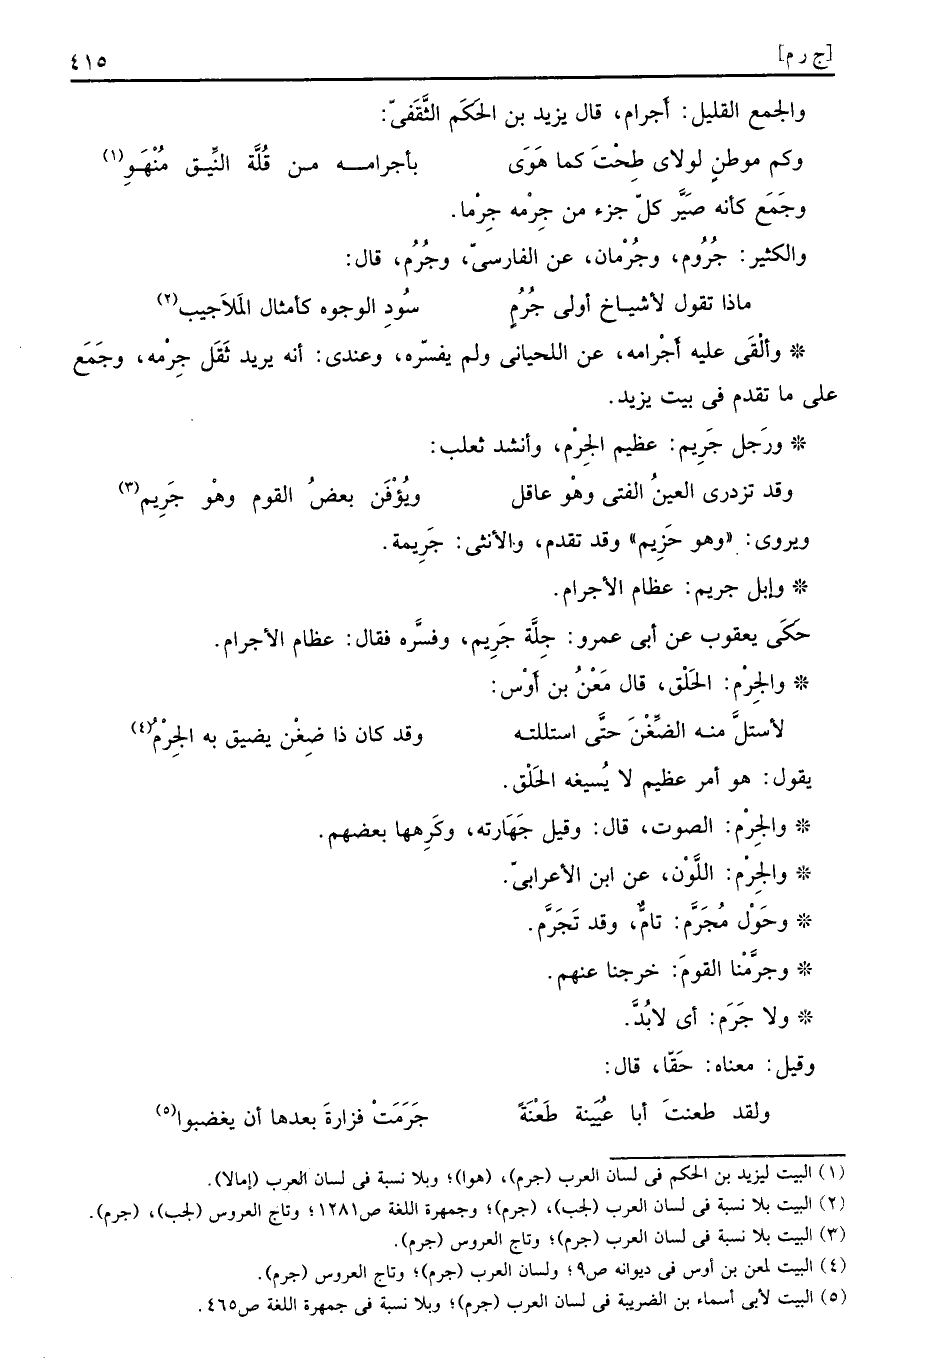 [ج ر م] ٤١٥
والجمع القليل: أَجرام، قال يزيد بن الحَكَم الثَّقَفىّ:
وكم موطنٍ لولاى طِحْتَ كما هَوَى بأجرامـــه مـن قُلَّة النِّيـق مُنْهَـوِ(١)
وجَمَع كأنه صَيَّر كلّ جزء من جِرْمه جِرْما.
والكثير: جُرُوم، وجُرْمان، عن الفارسىّ، وجُرُم، قال:
ماذا تقول لأشيـاخ أولى جُرُمٍ سُودِ الوجوه كأمثال المَلاَجيب(٢)
* وأَلْقَى عليه أَجْرامه، عن اللحيانى ولم يفسّره، وعندى: أنه يريد ثَقَل جِرْمه، وجَمَع
على ما تقدم فى بيت يزيد.
* ورَجل جَرِيم: عظيم الجِرْم، وأنشد ثعلب:
وقد تزدرى العينُ الفتى وهْو عاقل ويُؤْفَن بعضُ القوم وهْو جَرِيم(٣)
ويروى: «وهو حَزِيم» وقد تقدم، والأنثى: جَرِيمة.
* وإبل جريم: عظام الأجرام.
حَكَى يعقوب عن أبى عمرو: جِلَّة جَرِيم، وفسَّره فقال: عظام الأجرام.
* والجِرْم: الحَلْق، قال مَعْنُ بن أَوْس:
لأستلَّ منـه الضِّغْنَ حتَّى استللتـه وقد كان ذا ضِغْن يضيق به الجِرْمُ(٤)
يقول: هو أمر عظيم لا يُسيغه الحَلْق.
* والجِرْم: الصوت، قال: وقيل جَهَارته، وكَرِهها بعضهم.
* والجِرْم: اللَّوْن، عن ابن الأعرابىّ.
* وحَوْل مُجَرَّم: تامٌّ، وقد تَجَرَّم.
* وجرَّمْنا القومَ: خرجنا عنهم.
* ولا جَرَم: أى لابُدَّ.
وقيل: معناه: حَقّا، قال:
ولقد طعنتَ أبا عُيَينة طَعْنَةً جَرَمَتْ فزارةَ بعدها أن يغضبوا(٥)
(١) البيت ليزيد بن الحكم فى لسان العرب (جرم)، (هوا)؛ وبلا نسبة فى لسان العرب (إمالا).
(٢) البيت بلا نسبة فى لسان العرب (لجب)، (جرم)؛ وجمهرة اللغة ص١٢٨١؛ وتاج العروس (لجب)، (جرم).
(٣) البيت بلا نسبة فى لسان العرب (جرم)؛ وتاج العروس (جرم).
(٤) البيت لمعن بن أوس فى ديوانه ص٩؛ ولسان العرب (جرم)؛ وتاج العروس (جرم).
(٥) البيت لأبى أسماء بن الضريبة فى لسان العرب (جرم)؛ وبلا نسبة فى جمهرة اللغة ص٤٦٥.